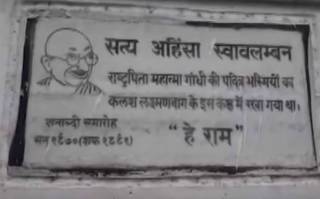 सत्य अहिंसा स्वावलम्बन
राष्ट्रपिता महात्मा गांधी की पवित्र भस्मियों का
कलश लक्ष्मणबाग के इस कक्ष में रखा गया था।
शताब्दी समारोह
सन् १९७०(शक १८९१)
"हे राम"